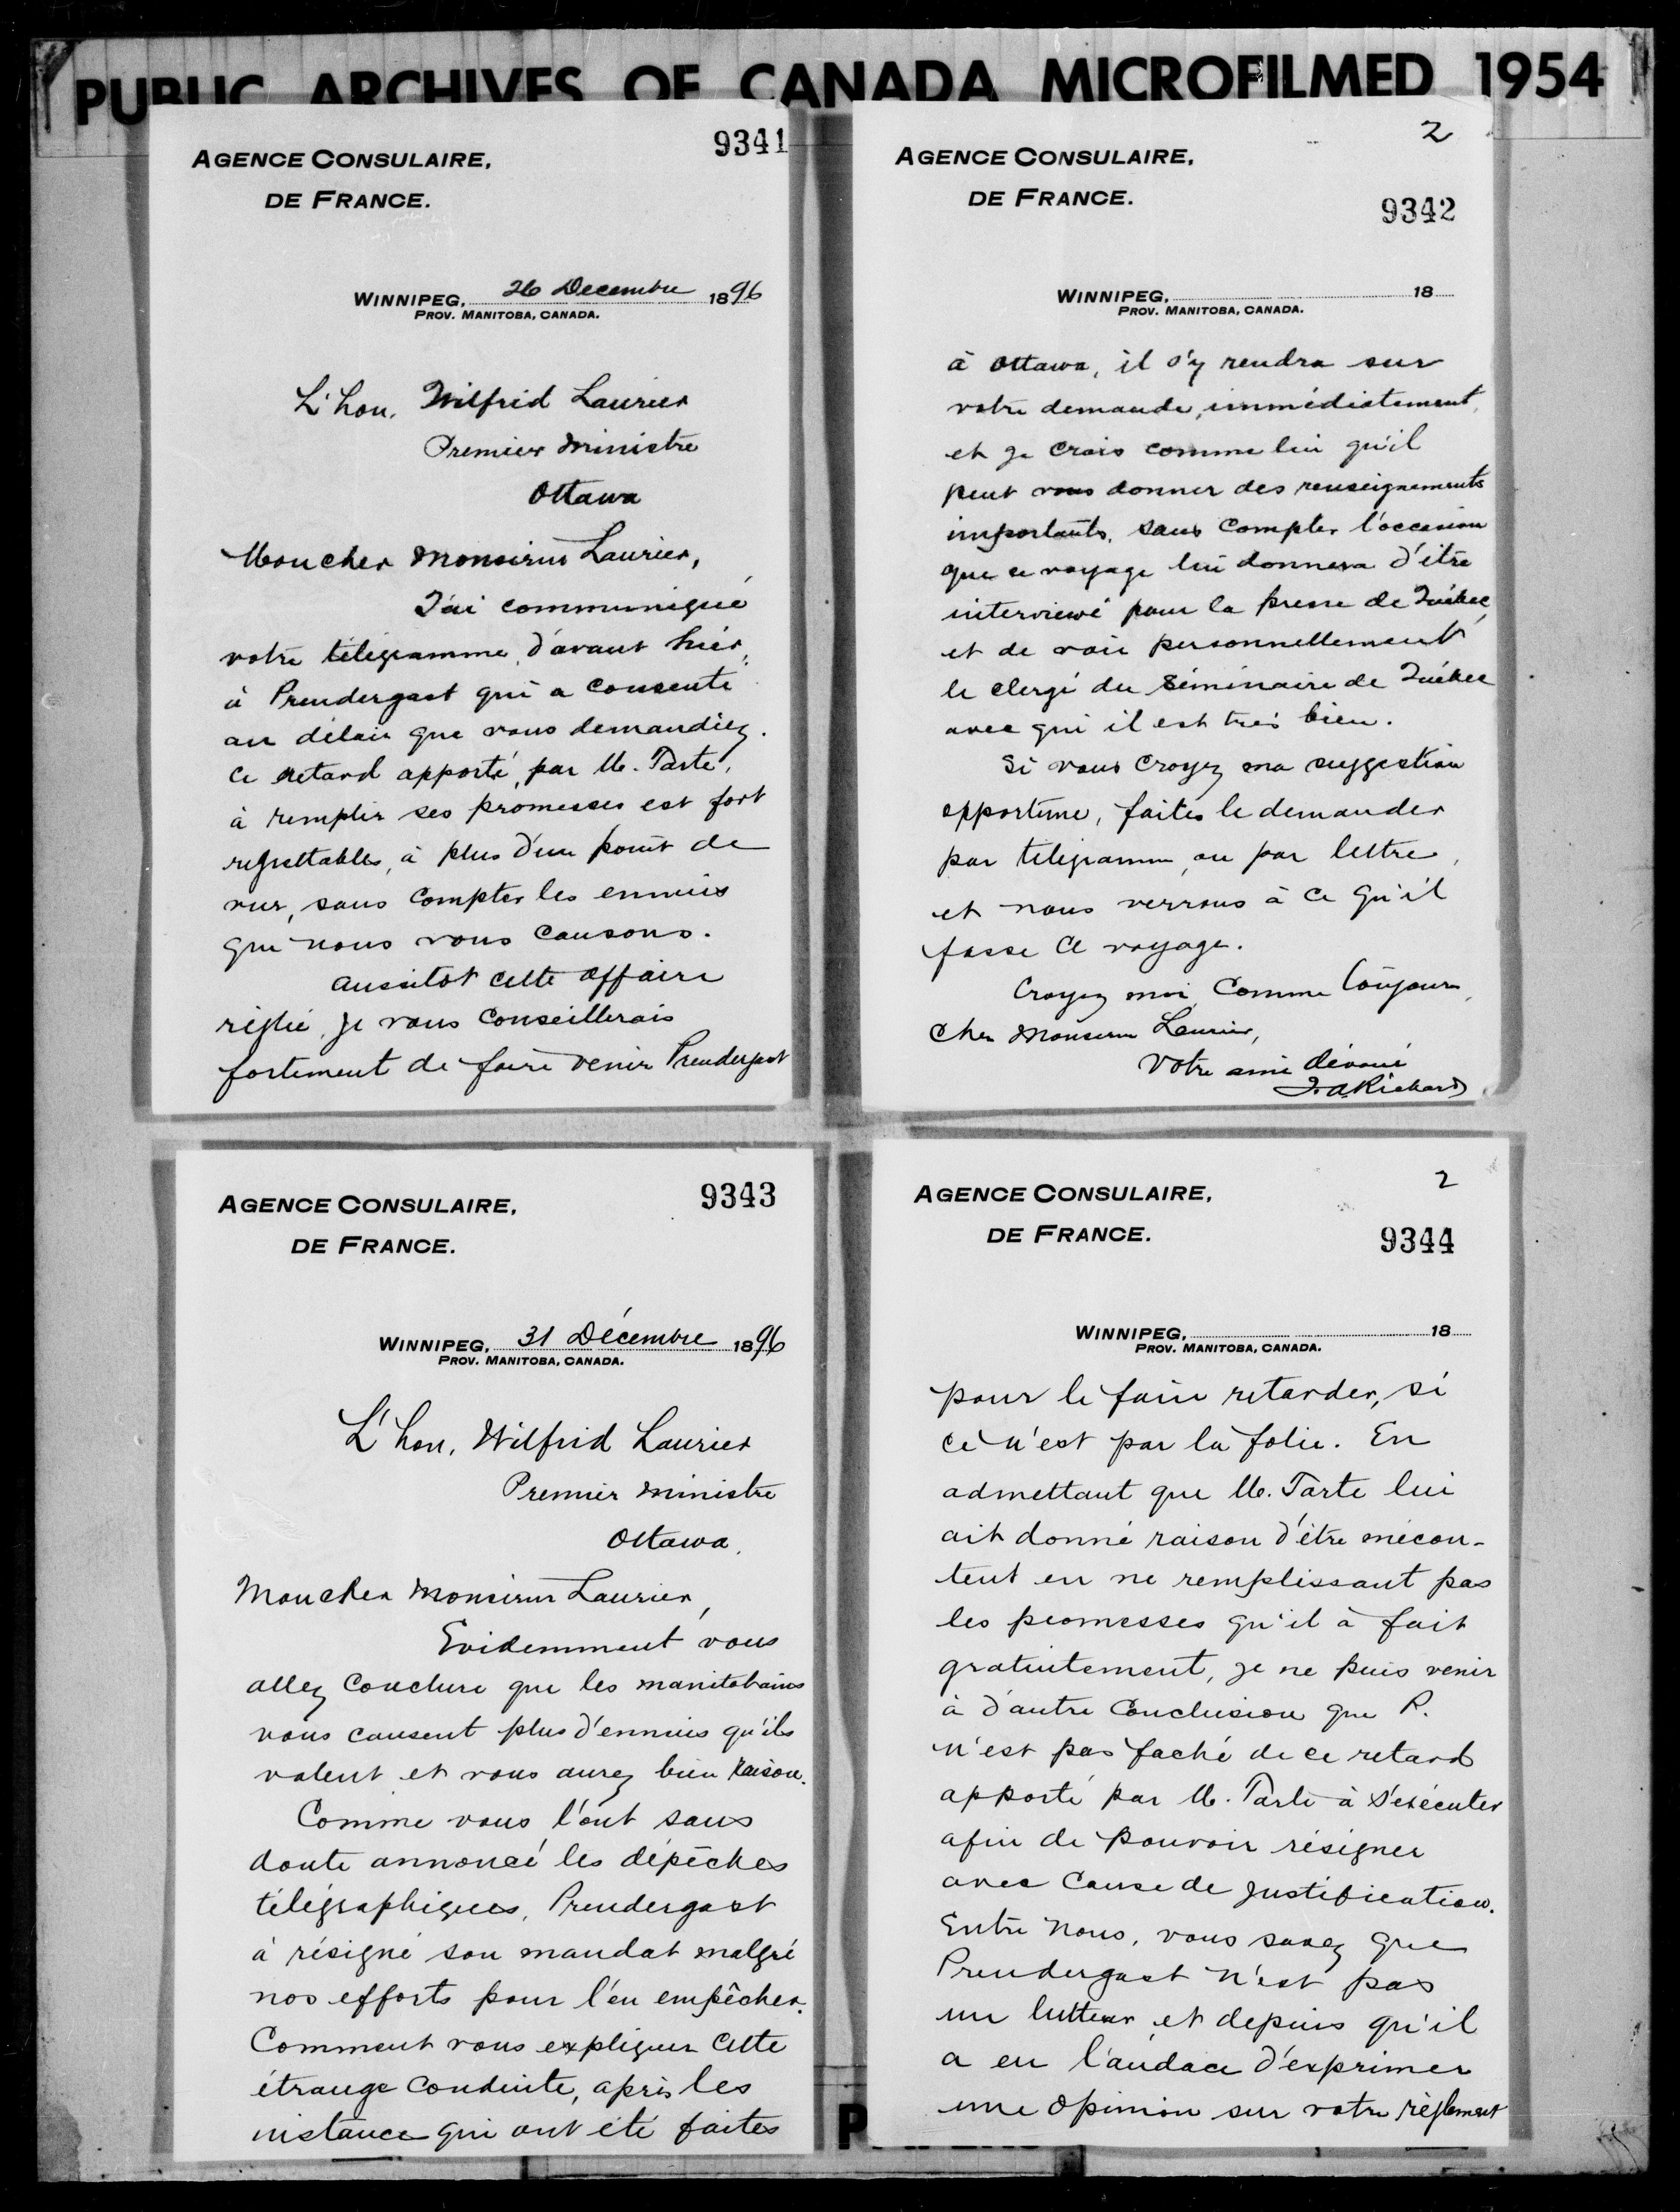 PUBLIC ARCHIVES OF CANADA MICROFILMED 1954
9341
AGENCE CONSULAIRE,
DE FRANCE.
WINNIPEG, 26 Decembre 1896
PROV. MANITOBA, CANADA.
L'hon. Wilfrid Laurier
Premier Ministre
Ottawa
Mon cher Monsieur Laurier,
J'ai communiqué
votre télégramme, d'avant hier,
à Prendergast qui a consenti
au délai que vous demandiez.
Ce retard apporté, par M. Tarte,
à remplir ses promesses est fort
regrettable, à plus d'un point de
vue, sans compter les ennuis
que nous vous causons.
Aussitôt cette affaire
réglée, je vous conseillerais
fortement de faire venir Prendergast
2
AGENCE CONSULAIRE,
DE FRANCE.
9342
WINNIPEG, 18
PROV. MANITOBA, CANADA.
à Ottawa, il s'y rendra sur
votre demande, immédiatement,
et je crois comme lui qu'il
peut vous donner des renseignements
importants, sans compter l'occasion
que ce voyage lui donnera d'être
interviewé pour la presse de Québec,
et de voir personnellement
le clergé du Séminaire de Québec
avec qui il est très bien.
Si vous croyez ma suggestion
opportune, faites le demander
par télégramme, ou par lettre,
et nous verrons à ce qu'il
fasse ce voyage.
Croyez moi, comme toujours,
Cher Monsieur Laurier,
Votre ami dévoué
J. A. Richard
9343
AGENCE CONSULAIRE,
DE FRANCE.
WINNIPEG, 31 Décembre 1896
PROV. MANITOBA, CANADA.
L'hon. Wilfrid Laurier
Premier Ministre
Ottawa.
Mon cher Monsieur Laurier,
Evidemment vous
allez conclure que les manitobains
vous causent plus d'ennuis qu'ils
valent et vous aurez bien raison.
Comme vous l'ont sans
doute annoncé les dépêches
télégraphiques, Prendergast
à résigné son mandat malgré
nos efforts pour l'en empêcher.
Comment vous expliquer cette
étrange conduite, après les
instance qui ont été faites
2
AGENCE CONSULAIRE,
DE FRANCE.
9344
WINNIPEG, 18
PROV. MANITOBA, CANADA.
pour le faire retarder, si
ce n'est par la folie. En
admettant que M. Tarte lui
ait donné raison d'être mécon-
tent en ne remplissant pas
les promesses qu'il à fait
gratuitement, je ne puis venir
à d'autre conclusion que P.
n'est pas faché de ce retard
apporté par M. Tarte à s'exécuter
afin de pouvoir résigner
avec cause de justification.
Entre nous, vous savez que
Prendergast n'est pas
un lutteur, et depuis qu'il
a eu l'audace d'exprimer
une opinion sur votre règlement